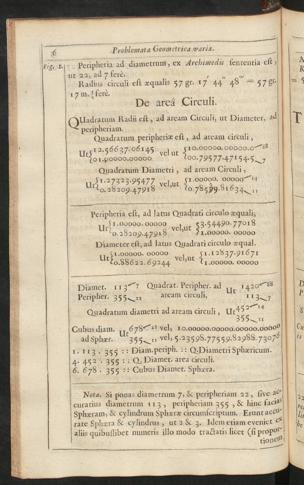 36 Problemata Geometrica varia.
Fig. 1. Peripheria ad diametrum, ex Archimedis sententia est,
ut 22, ad 7 ferè.
Radius circuli est æqualis 57 gr. 17′ 44″ 48‴ = 57 gr.
17 m. ¾ ferè.
De areâ Circuli.
Quadratum Radii est, ad aream Circuli, ut Diameter, ad
peripheriam.
Quadratum peripheriæ est, ad aream circuli,
Ut 12.56637.06145 vel ut 10.00000.00000.00
01.00000.00000 00.79577.47154.5
Quadratum Diametri, ad aream Circuli,
Ut 1.27323.95477 vel, ut 1.00000. 00000
0.28209.47918 0.78539.81634
Peripheria est, ad latus Quadrati circulo æqualis;
Ut 1.00000.00000 vel, ut 3.54490.77018
0.28209.47918 1.00000. 00000
Diameter est, ad latus Quadrati circulo æqual.
Ut 1.00000. 00000 vel, ut 1.12837.91671
0.88622.69244 1.00000. 00000
Diamet. 113 7 Quadrat. Peripher. ad Ut 1420
Peripher. 355 aream circuli, 113
Quadratum diametri ad aream circuli, Ut 452
355
Cubus diam. Ut 678 vel, 10.00000.00000.00000.00000
ad Sphær. 355 vel, 5.23598.77559.82988.
1. 113. 355 :: Diam. periph. :: Q: Diametri Sphæricum.
4. 452. 355 :: Q. Diamet. area circuli.
6. 678. 355 :: Cubus Diamet. Sphæra.
Nota. Si ponas diametrum 7, & peripheriam 22, sive ac-
curatius diametrum 113, peripheriam 355, & hinc facias
Sphæram, & cylindrum Sphæræ circumscriptum. Erunt accu-
rate Sphæra & cylindrus, ut 2 & 3. Idem etiam eveniet ex
aliis quibuslibet numeris illo modo tractatis licet (si propor-
tionem